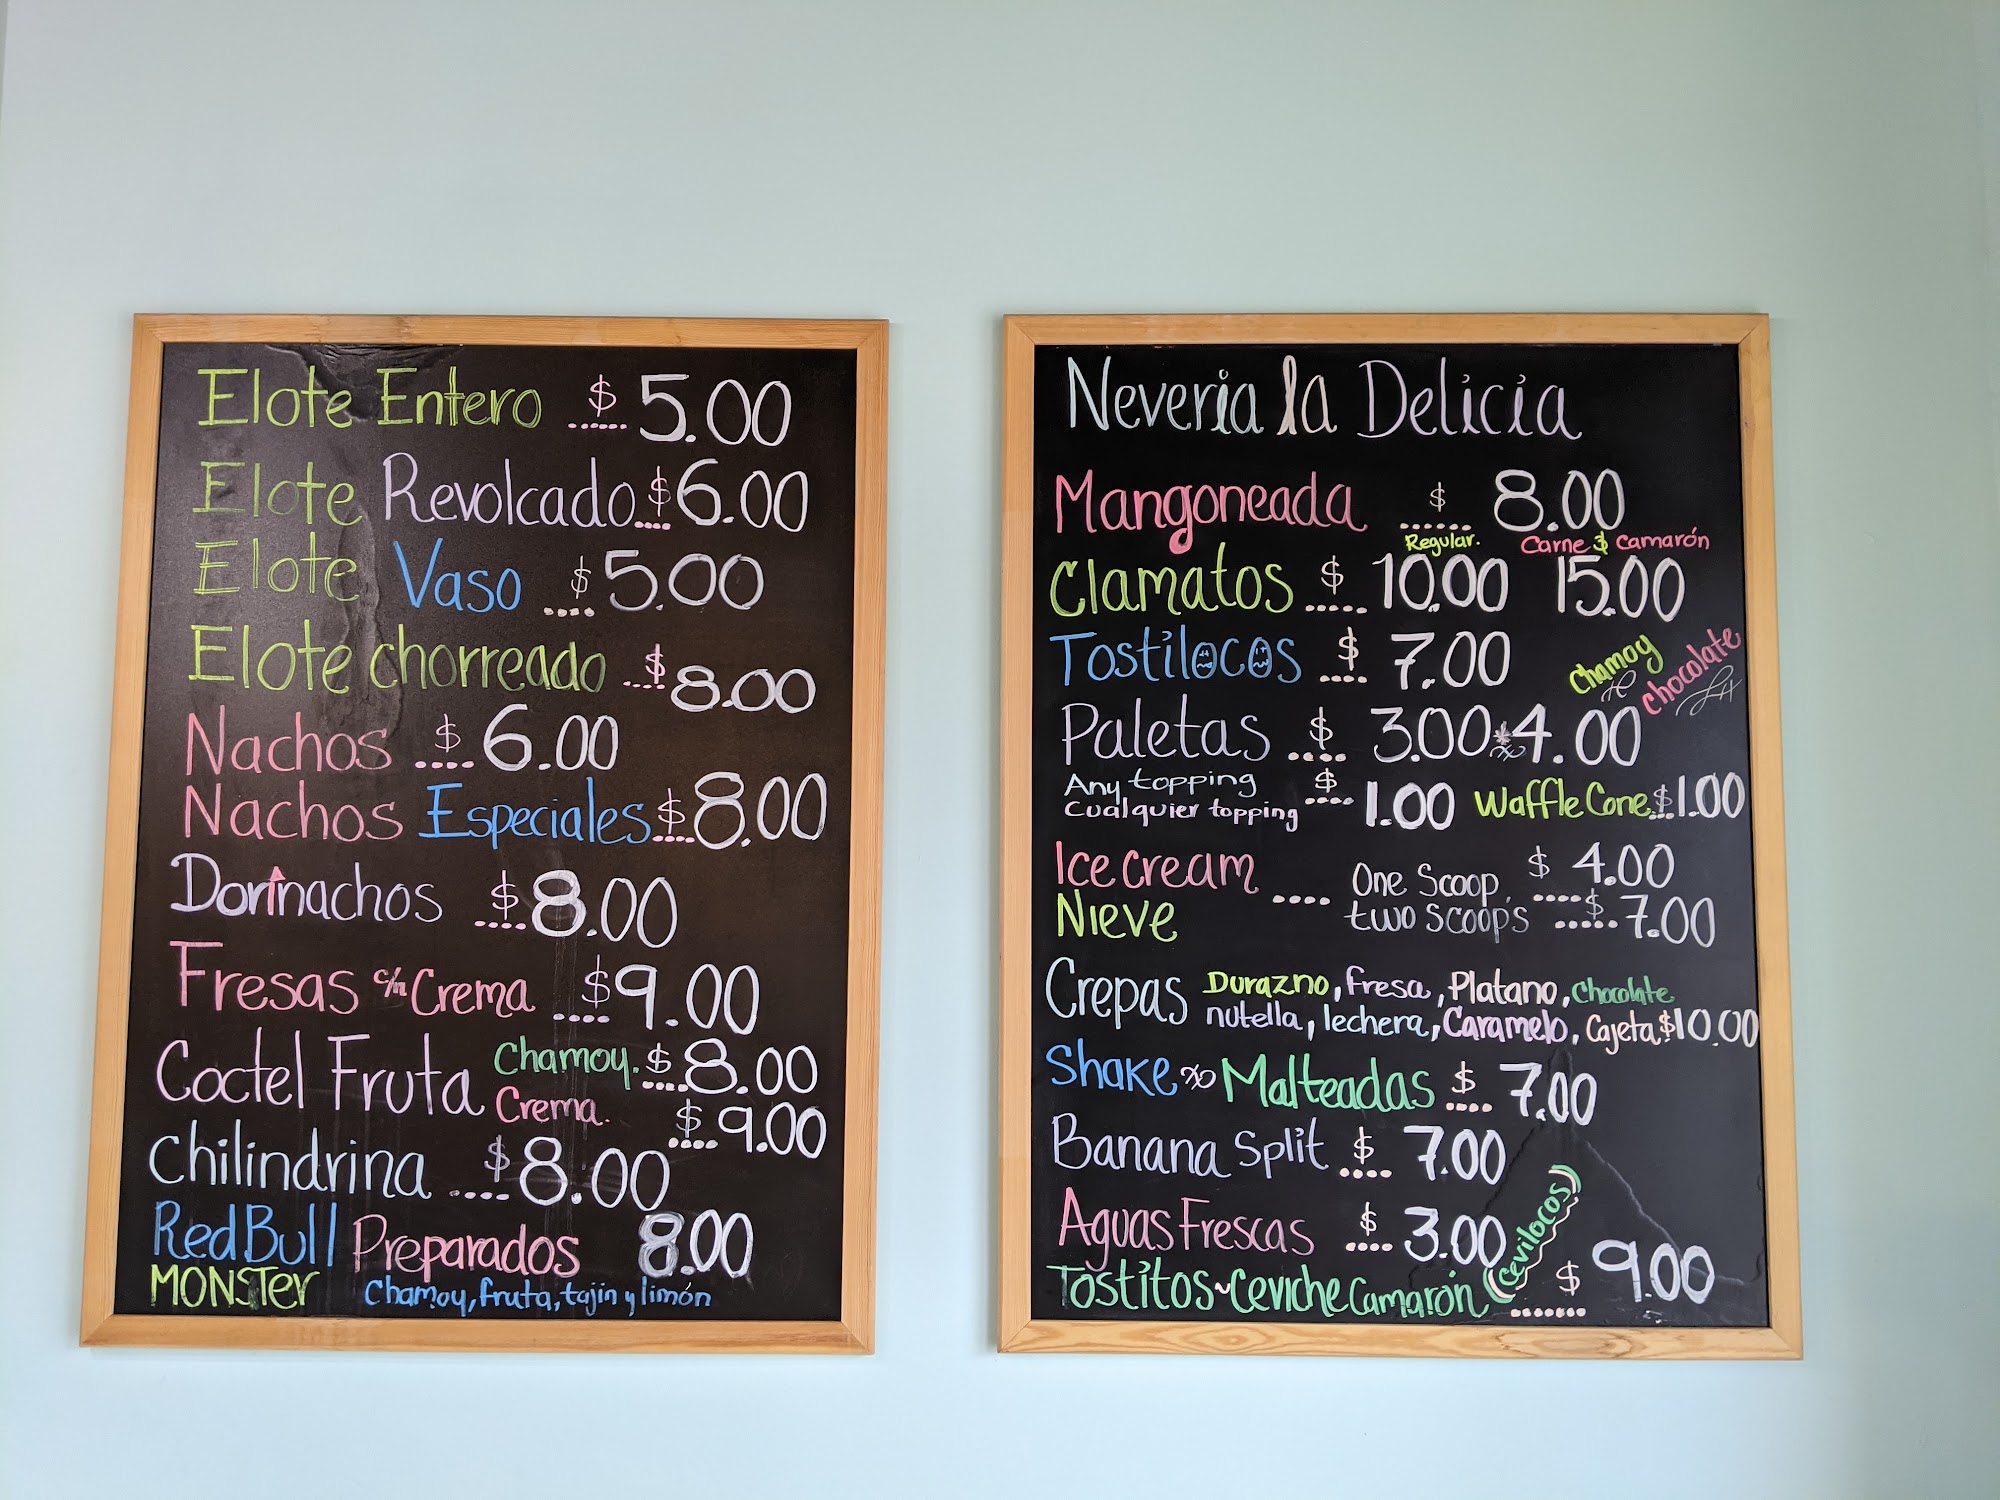 Elote Entero ......$ 5.00
Elote Revolcado....$ 6.00
Elote Vaso ....$ 5.00
Elote chorreado ....$ 8.00
Nachos ....$ 6.00
Nachos Especiales ....$ 8.00
Dorinachos ....$ 8.00
Fresas c/n Crema ....$ 9.00
Coctel Fruta Chamoy. ....$ 8.00
Crema. ....$ 9.00
Chilindrina ....$ 8.00
RedBull Preparados 8.00
MONSTER Chamoy, fruta, tajin y limón
Neveria la Delicia
Mangoneada ......$ 8.00
Regular. Carne & Camarón
Clamatos .....$ 10.00 15.00
Tostilocos ....$ 7.00
Chamoy chocolate
Paletas ....$ 3.00 4.00
Any topping
Cualquier topping ....$ 1.00 Waffle Cone...$ 1.00
Ice cream .... One Scoop ....$ 4.00
Nieve two scoop's .....$ 7.00
Crepas Durazno, fresa, Platano, Chocolate
nutella, lechera, Caramelo, Cajeta $10.00
Shake Malteadas ....$ 7.00
Banana Split ....$ 7.00
Aguas Frescas ....$ 3.00
Tostitos~Ceviche Camarón Cevilocos ......$ 9.00